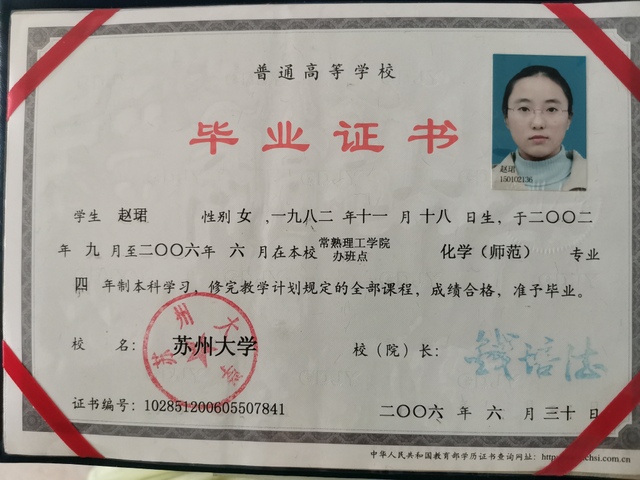 普通高等学校
毕业证书
赵珺
150102136
学生 赵珺 性别 女，一九八二 年十一 月 十八 日生，于二〇〇二
年 九 月至二〇〇六年 六 月在本校 常熟理工学院办班点 化学（师范） 专业
四 年制本科学习，修完教学计划规定的全部课程，成绩合格，准予毕业。
校 名： 苏州大学 校（院）长： 钱培德
苏州大学
证书编号：102851200605507841 二〇〇六 年 六 月 三十 日
中华人民共和国教育部学历证书查询网址：http chsi.com.cn